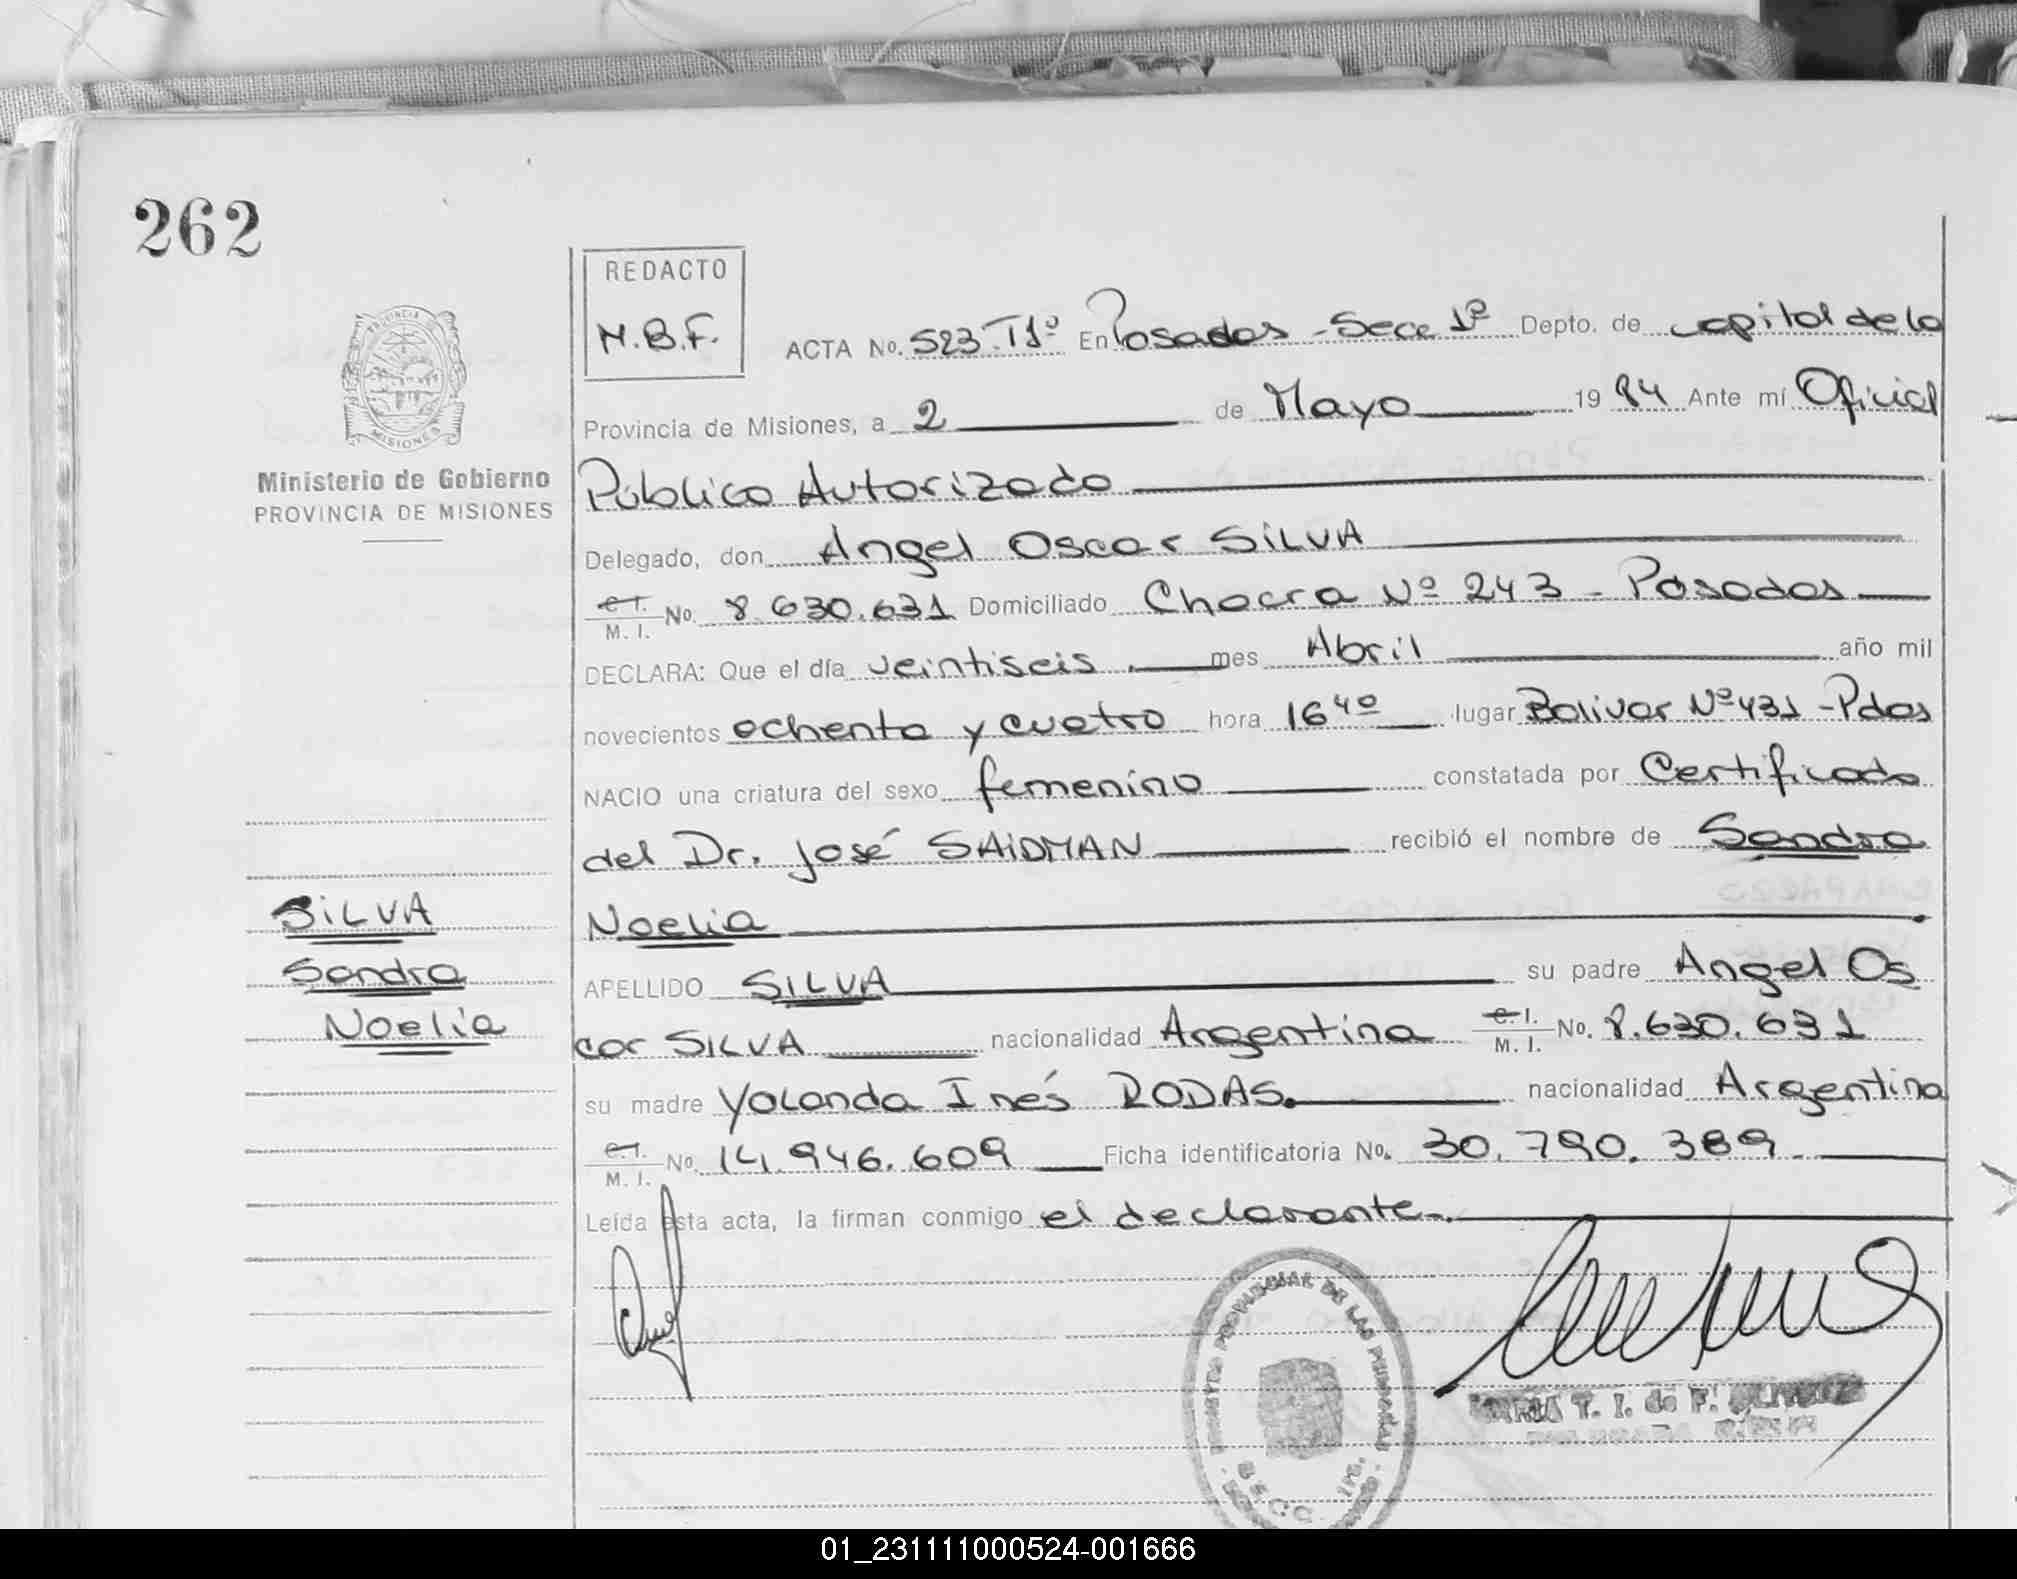 262
REDACTO
M.B.F.
ACTA No. 523.T1º En Posadas - Secc 1ª Depto. de capital de la
Provincia de Misiones, a 2 de Mayo 1984 Ante mí Oficial
PROVINCIA DE
MISIONES
Ministerio de Gobierno
PROVINCIA DE MISIONES
Público Autorizado
Delegado, don Angel Oscar SILVA
C.I. M.I. No. 8.630.631 Domiciliado Chacra Nº 243 - Posadas
DECLARA: Que el día veintiseis mes Abril año mil
novecientos ochenta y cuatro hora 16 40 lugar Bolivar Nº 431 - Pdas
NACIO una criatura del sexo femenino constatada por Certificado
del Dr. José SAIDMAN recibió el nombre de Sandra
Noelia
SILVA
Sandra
Noelia
APELLIDO SILVA su padre Angel Os
car SILVA nacionalidad Argentina C.I. M.I. No. 8.630.631
su madre Yolanda Inés RODAS. nacionalidad Argentina
C.I. M.I. No. 14.946.609 Ficha identificatoria No. 30.790.389
Leída esta acta, la firman conmigo el declarante.
DE LAS PERSONAS
MARIA T. I. de F.
01_231111000524-001666